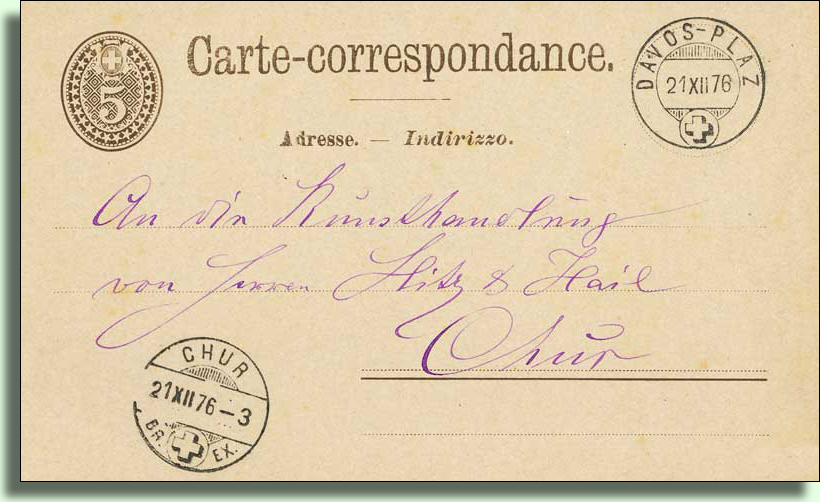 5
Carte-correspondance.
DAVOS-PLAZ
21 XII 76
Adresse. — Indirizzo.
An die Kunsthandlung
von Herren Hitz & Hail
Chur
CHUR
21 XII 76 – 3
BR. EX.